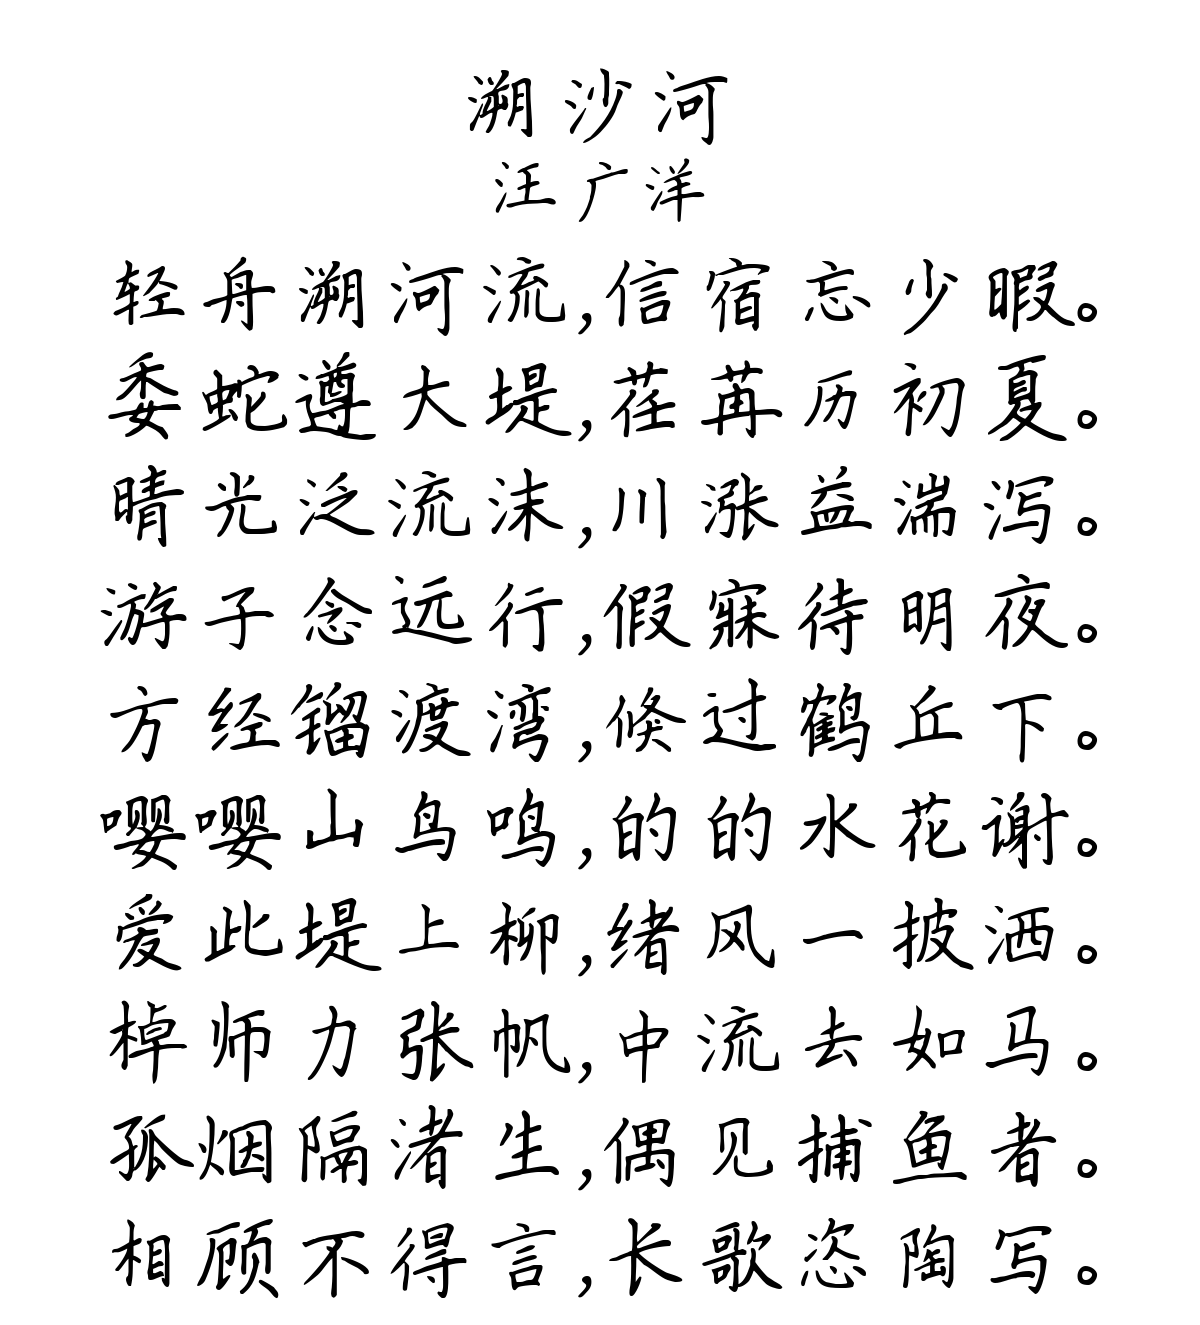 溯沙河
汪广洋
轻舟溯河流,信宿忘少暇。
委蛇遵大堤,荏苒历初夏。
晴光泛流沫,川涨益湍泻。
游子念远行,假寐待明夜。
方经镏渡湾,倏过鹤丘下。
嘤嘤山鸟鸣,的的水花谢。
爱此堤上柳,绪风一披洒。
棹师力张帆,中流去如马。
孤烟隔渚生,偶见捕鱼者。
相顾不得言,长歌恣陶写。